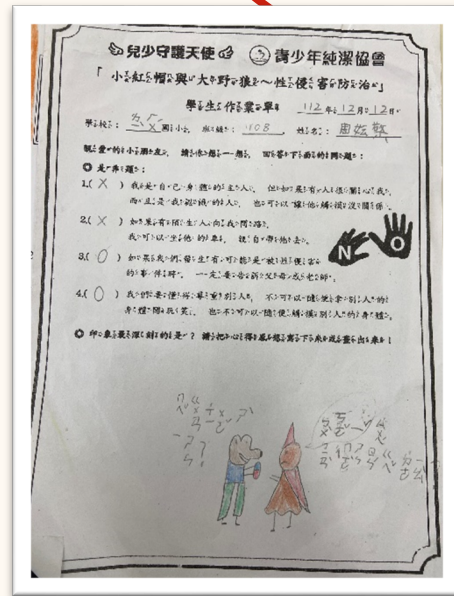 兒少守護天使 青少年純潔協會
「小紅帽與大野狼~性侵害防治」
學生作業單 112年12月12日
學校： 國小 班級：10B 姓名：
親愛的小朋友, 請你想一想, 回答下面的問題：
是非題：
1.( X ) 我是自己身體的主人, 但如果有人很關心我,
而且是我認識的人, 也可以讓他觸摸沒關係。
2.( X ) 如果有陌生人向我問路,
我可以坐他的車, 親自帶他去。
3.( O ) 如果我們發生有可能是被性侵害
的事件時, 一定要告訴父母或老師。
4.( O ) 我們要懂得尊重別人, 不可以隨便拿別人的
身體開玩笑, 也不可以隨便觸摸別人的身體。
NO
印象最深刻的是? 請把心得感想寫下來或畫出來!